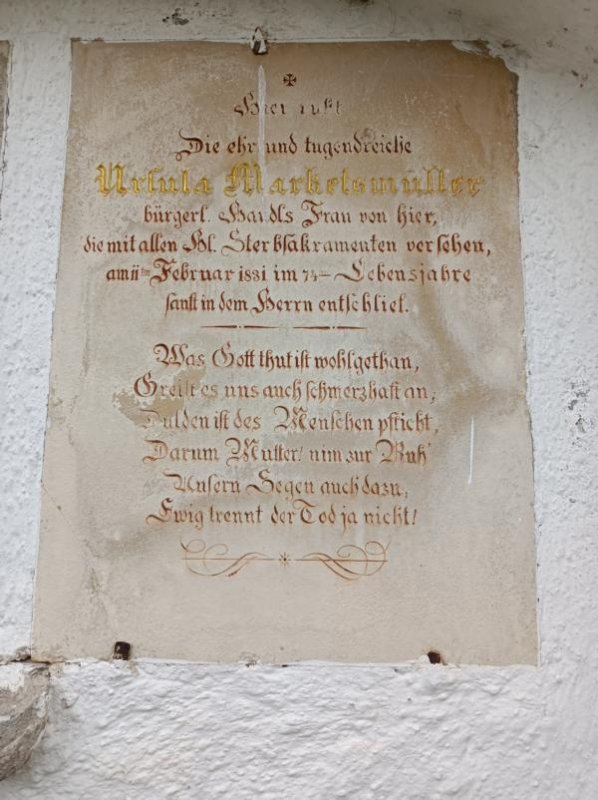 Hier ruht
Die ehr und tugendreiche
Ursula Markelsmüller
bürgerl. Handls Frau von hier,
die mit allen Hl. Sterbsakramenten versehen,
am 11ten Februar 1831 im 74ten Lebensjahre
sanft in dem Herrn entschlief.
Was Gott thut ist wohlgethan,
Greift es uns auch schmerzhaft an,
Dulden ist des Menschen pflicht,
Darum Mutter! nim zur Ruh'
Unsern Segen auch dazu,
Ewig trennt der Tod ja nicht!